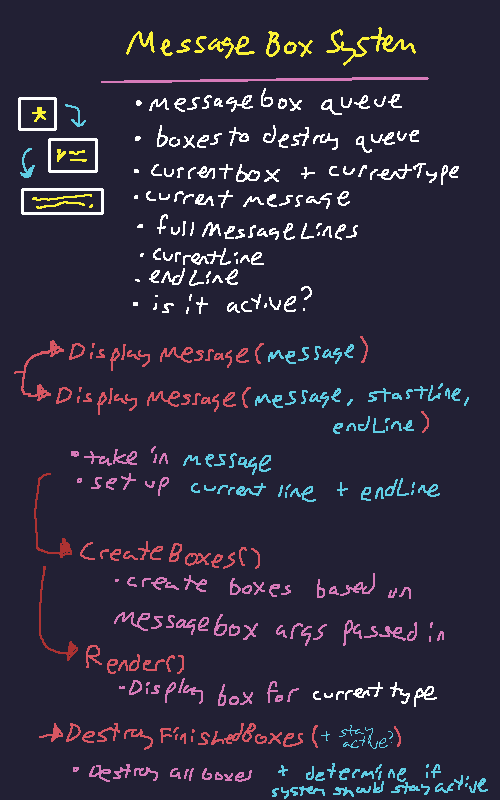 Message Box System
• message box queue
• boxes to destroy queue
• currentbox + currentType
• current message
• full Message Lines
• currentLine
• endLine
• is it active?
Display Message (message)
Display Message (message, startLine,
endLine)
• take in message
• set up current line + endLine
Create Boxes()
• create boxes based on
message box args passed in
Render()
• Display box for current type
Destroy Finished Boxes (+ stay
active?)
• Destroy all boxes + determine if
system should stay active